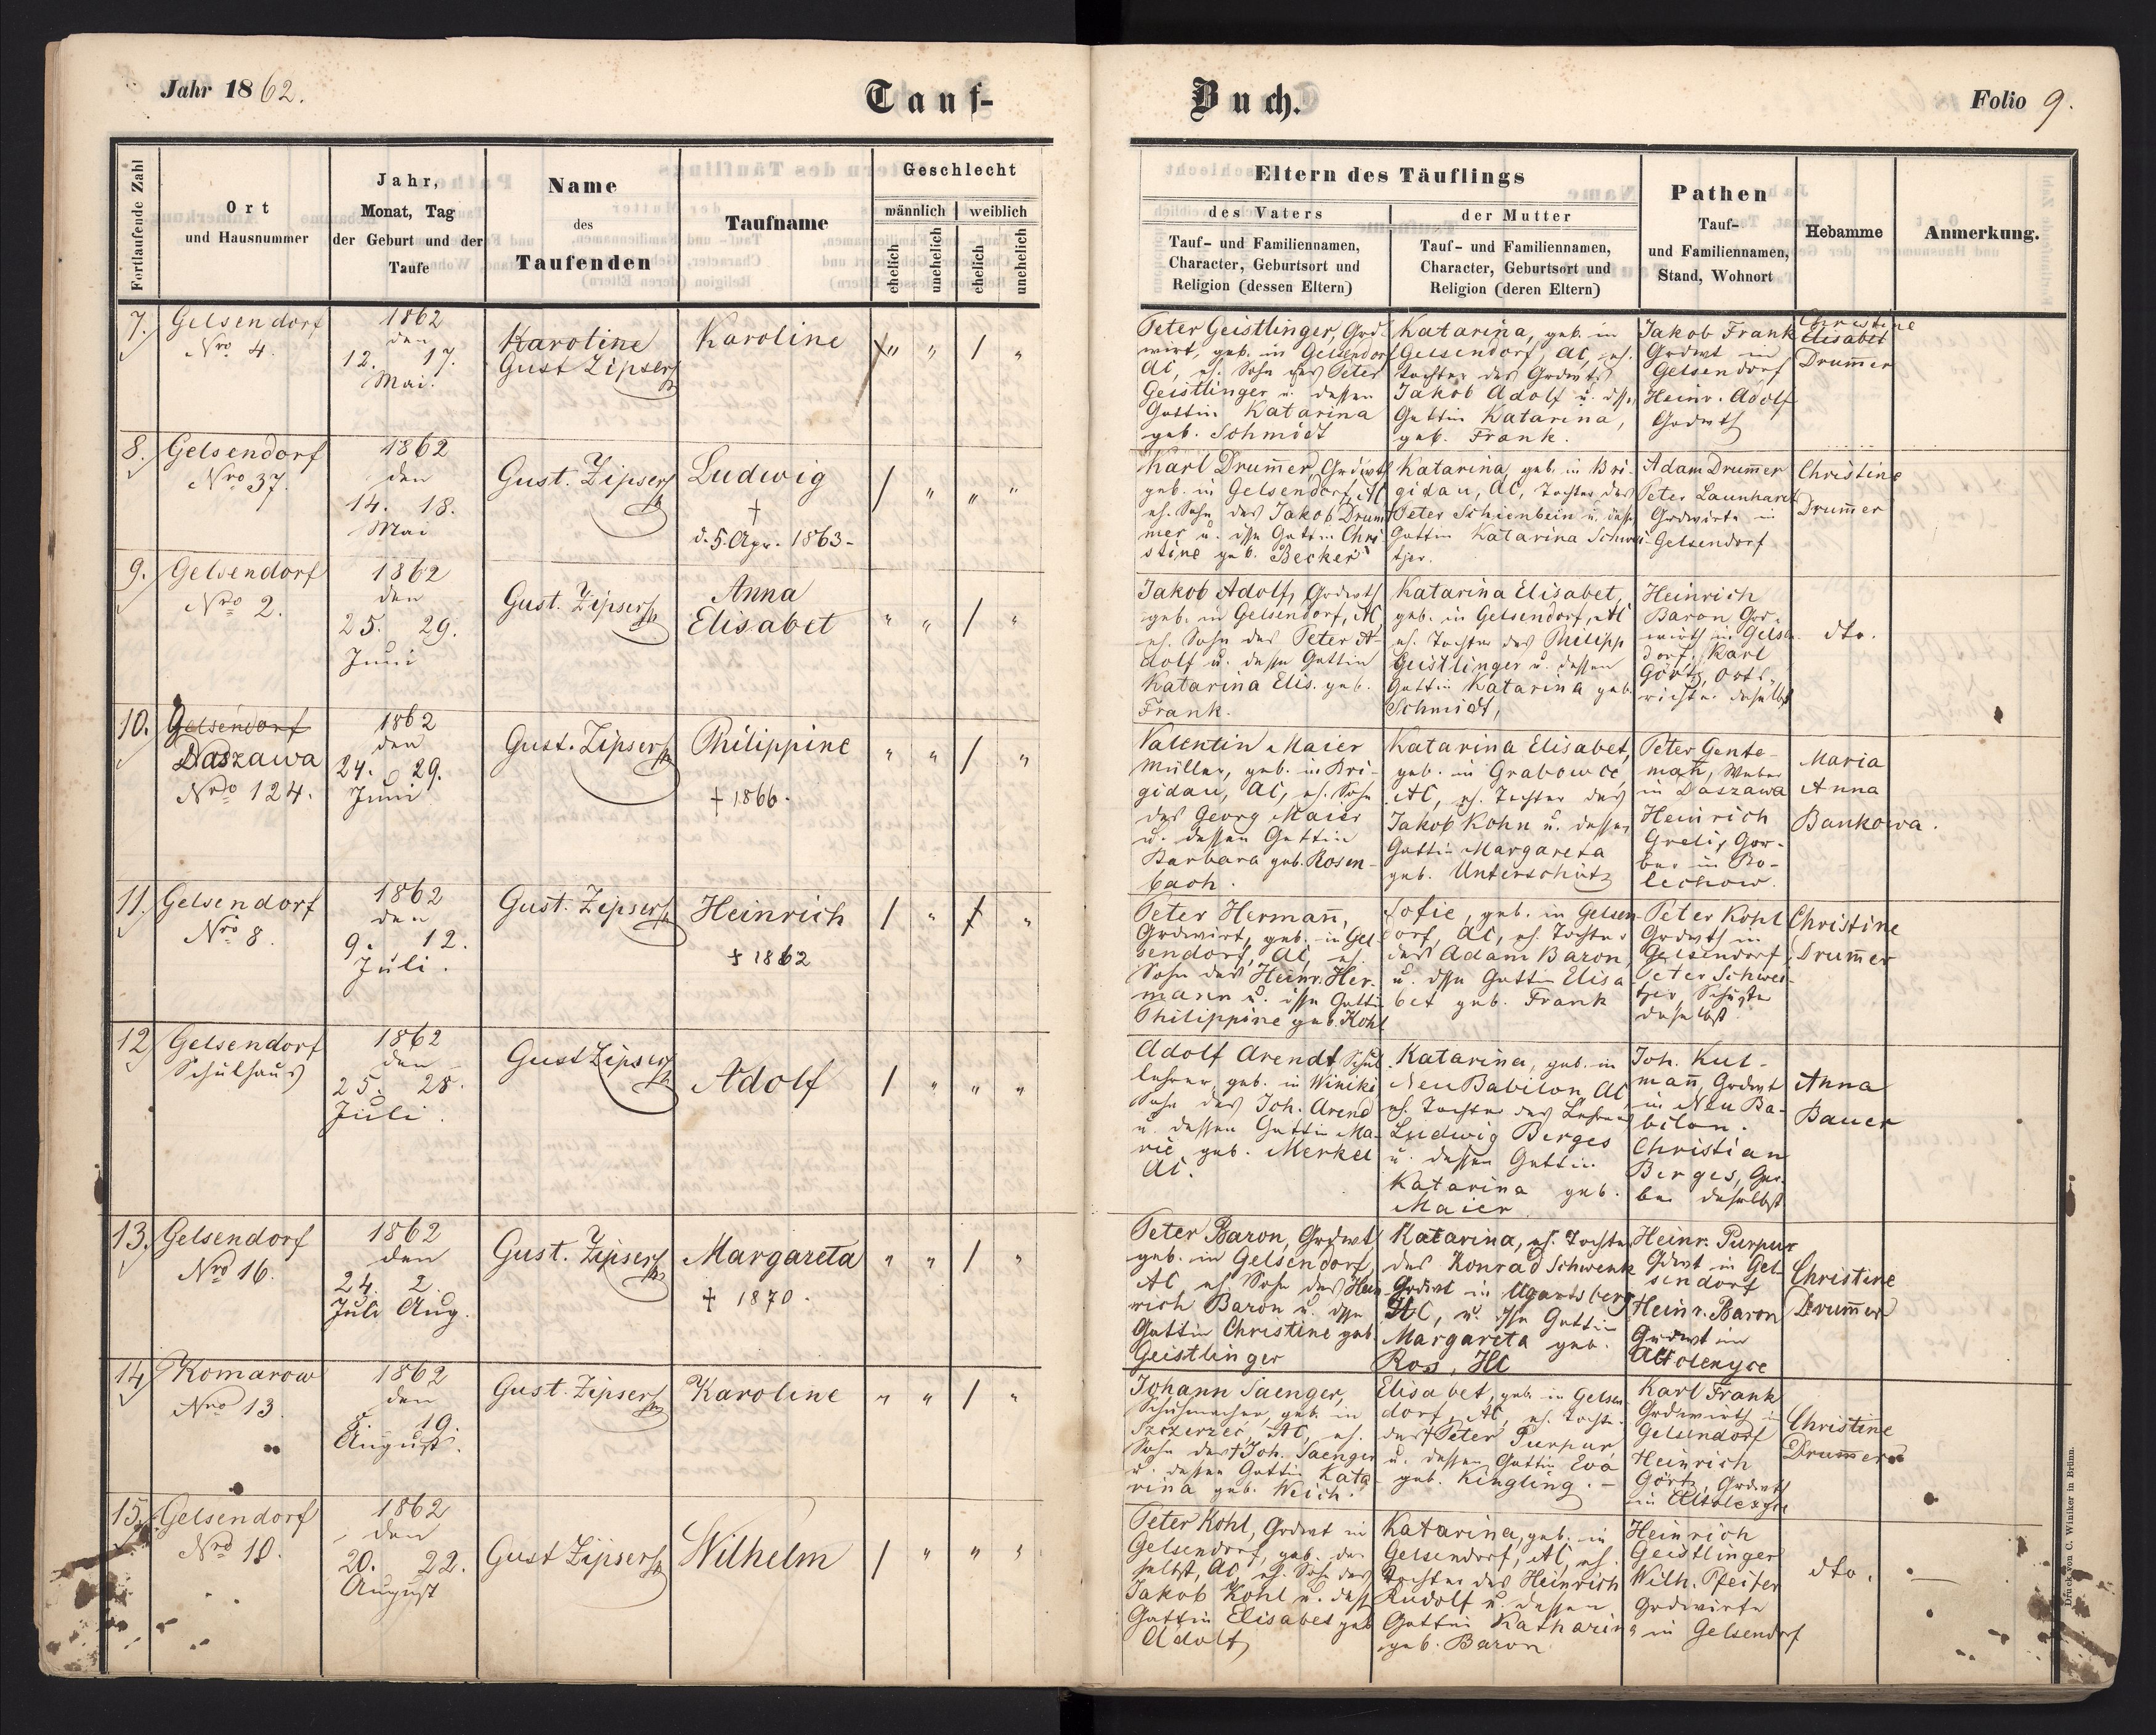 Jahr 1862.
Tauf-
Buch.
Folio 9.
Fortlaufende Zahl
Ort
und Hausnummer
Jahr,
Monat, Tag
der Geburt und der
Taufe
Name
des
Taufenden
Taufname
Geschlecht
männlich
weiblich
ehelich
unehelich
ehelich
unehelich
Eltern des Täuflings
des Vaters
Tauf- und Familiennamen,
Character, Geburtsort und
Religion (dessen Eltern)
der Mutter
Tauf- und Familiennamen,
Character, Geburtsort und
Religion (deren Eltern)
Pathen
Tauf-
und Familiennamen,
Stand, Wohnort
Hebamme
Anmerkung.
7.
Gelsendorf
Nro 4.
1862
den
12. 17.
Mai.
Karoline
Gust Zipser
Karoline
" " / "
Peter Geistlinger, Grd-
wirt, geb. in Gelsendorf
AC, eh. Sohn des Peter
Geistlinger u. dessen
Gattin Katarina
geb. Schmidt
Katarina, geb. in
Gelsendorf, AC, eh.
Tochter des Grdwts
Jakob Adolf u. dssn
Gattin Katarina,
geb. Frank.
Jakob Frank
Grdwt in
Gelsendorf
Heinr. Adolf
Grdwth
Christine
Elisabet
Drum̄er
8.
Gelsendorf
Nro 37.
1862
den
14. 18.
Mai
Gust. Zipser
Ludwig
†
d. 5. Apr. 1863-
/ " " "
Karl Drum̄er, Grdwt
geb. in Gelsendorf, AC
eh. Sohn des Jakob Drum̄
mer u. dssn Gattin Chri
stine geb. Becker
Katarina geb. in Bri-
gidau, AC, Tochter des
Peter Schienbein u. dessn
Gattin Katarina Schwei-
tzer.
Adam Drum̄er
Peter Launhardt
Grdwirte in
Gelsendorf
Christine
Drum̄er
9.
Gelsendorf
Nro 2.
1862
den
25. 29.
Juni
Gust. Zipser
Anna
Elisabet
" " / "
Jakob Adolf, Grdwth
geb. in Gelsendorf, AC
eh. Sohn des Peter A-
dolf u. dessn Gattin
Katarina Elis. geb.
Frank.
Katarina Elisabet,
geb. in Gelsendorf, AC
eh. Tochter des Philipp
Geistlinger u. dessen
Gattin Katarina geb.
Schmidt,
Heinrich
Baron Grd-
wirth in Gelsn
dorf. Karl
Görtz, Orts-
richter daselbst
dto.
10.
Gelsendorf
Daszawa
Nro 124.
1862
den
24. 29.
Juni
Gust. Zipser
Philippine
† 1866.
" " / "
Valentin Maier
Müller, geb. in Bri-
gidau, AC, eh. Sohn
des Georg Maier
u. dessen Gattin
Barbara geb. Rosen-
bach.
Katarina Elisabet,
geb. in Grabowce,
AC, eh. Tochter des
Jakob Kohn u. dessen
Gattin Margareta
geb. Unterschütz
Peter Gente-
man̄, Weber
in Daszawa
Heinrich
Grelis, Ger-
ber in Bo-
lechow.
Maria
Anna
Bankowa.
11.
Gelsendorf
Nro 8.
1862
den
9. 12.
Juli.
Gust. Zipser
Heinrich
† 1862
/ " / "
Peter Herman̄,
Grdwirt, geb. in Gel
sendorf, AC, eh.
Sohn des Heinr. Her-
mann u. dssn Gattin
Philippine geb. Kohl
Sofie, geb. in Gelsen
dorf, AC, eh. Tochter
des Adam Baron,
u. dssn Gattin Elisa
bet geb. Frank
Peter Kohl
Grdwth in
Gelsendorf
Peter Schwei-
tzer, Schuster
daselbst
Christine
Drum̄er
12
Gelsendorf
Schulhaus
1862
den
25. 28.
Juli.
Gust Zipser
Adolf
/ " " "
Adolf Arendt, Schul
lehrer, geb. in Winiki
Sohn des Joh. Arend
u. dessen Gattin Ma-
rie geb. Merkel
AC.
Katarina, geb. in
Neu Babilon, AC
eh. Tochter des Lehrers
Ludwig Berges
u. dessen Gattin
Katarina geb.
Maier
Joh. Kul-
man̄, Grdwt
in Neu Ba-
bilon.
Christian
Berges, Ger-
ber daselbst
Anna
Bauer
13.
Gelsendorf
Nro 16.
1862
den
24. 2.
Juli Aug.
Gust. Zipser
Margareta
† 1870.
" " / "
Peter Baron, Grdwt
geb. in Gelsendorf,
AC eh. Sohn des Hein
rich Baron u. dssn
Gattin Christine geb.
Geistlinger
Katarina, eh. Tochter
des Konrad Schwenk
Grdwt in Ugartsberg
HC, u. dssn Gattin
Margareta geb.
Ros, HC
Heinr. Purpur
Grdwt in Gel
sendorf
Heinr. Baron
Grdwt in
Christine
Drum̄er
14
Komarow
Nro 13.
1862
den
8. 10.
August.
Gust. Zipser
Karoline
" " / "
Johann Saenger,
Schuhmacher, geb. in
Szczerzec, AC, eh.
Sohn des † Joh. Saenger
u. dessen Gattin Kata
rina geb. Weich.
Elisabet, geb. in Gelsen
dorf, AC, eh. Tochter
des † Peter Purpur
u. dessen Gattin Eva
geb. Kingling. -
Karl Frank
Grdwirth in
Gelsendorf
Heinrich
Görtz, Grdwth
in
Christine
Drum̄er
15.
Gelsendorf
Nro 10.
1862
den
20. 22.
August
Gust Zipser
Wilhelm
/ " " "
Peter Kohl, Grdwt in
Gelsendorf, geb. da
selbst, AC, eh. Sohn des
Jakob Kohl u. dess
Gattin Elisabet geb
Adolf
Katarina, geb. in
Gelsendorf, AC, eh.
Tochter des Heinrich
Rudolf u. dessen
Gattin Katharina
geb. Baron
Heinrich
Geistlinger
Wilh. Pfeifer
Grdwirte
in Gelsendorf
dto.
Druck von C. Winiker in Brünn.